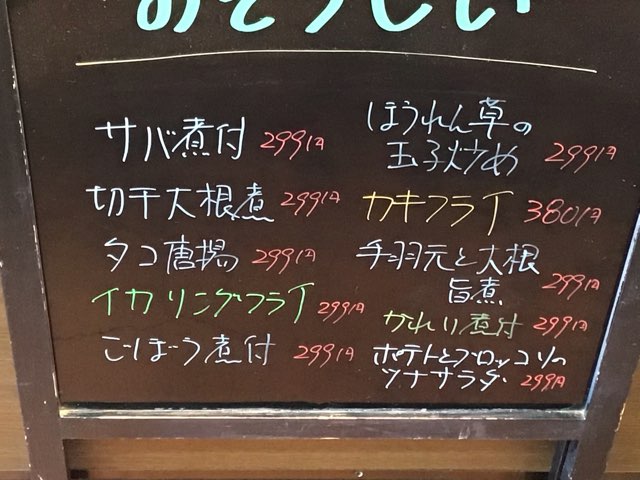 おそうじい
サバ煮付 299円
切干大根煮 299円
タコ唐揚 299円
イカリングフライ 299円
ごぼう煮付 299円
ほうれん草の
玉子炒め 299円
カキフライ 380円
手羽元と大根
旨煮 299円
かれい煮付 299円
ポテトとブロッコリの
ツナサラダ 299円